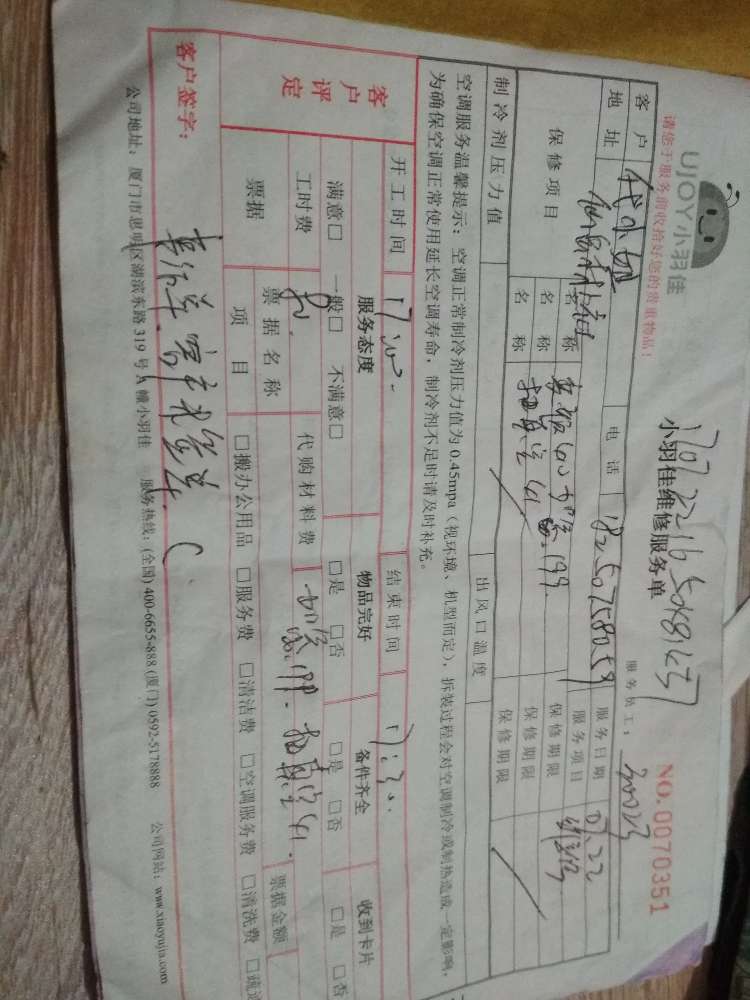 UJOY小羽佳
小羽佳维修服务单
NO.0070351
请您于服务前收拾好您的贵重物品!
服务员工:
客户
电话 18250758059
服务日期 07.22
地址
服务项目 维修
保修项目
名称
保修期限
名称 加氨.199.
保修期限
名称 抽真空41
保修期限
制冷剂压力值
出风口温度
空调服务温馨提示:空调正常制冷剂压力值为0.45mpa(视环境、机型而定),拆装过程会对空调制冷或制热造成一定影响,
为确保空调正常使用延长空调寿命,制冷剂不足时请及时补充。
客户评定
开工时间
结束时间 17:30.
服务态度
物品完好
备件齐全
收到卡片
满意□ 一般□ 不满意□
□是 □否
□是 □否
□是 □否
工时费
代购材料费 199. 抽真空41.
票据
票据名称
票据金额
项目
□搬办公用品 □服务费 □清洁费 □空调服务费 □清洗费
客户签字:
公司地址:厦门市思明区湖滨东路319号A幢小羽佳 服务热线:(全国)400-6655-888(厦门)0592-5178888 公司网站:www.xiaoyujia.com